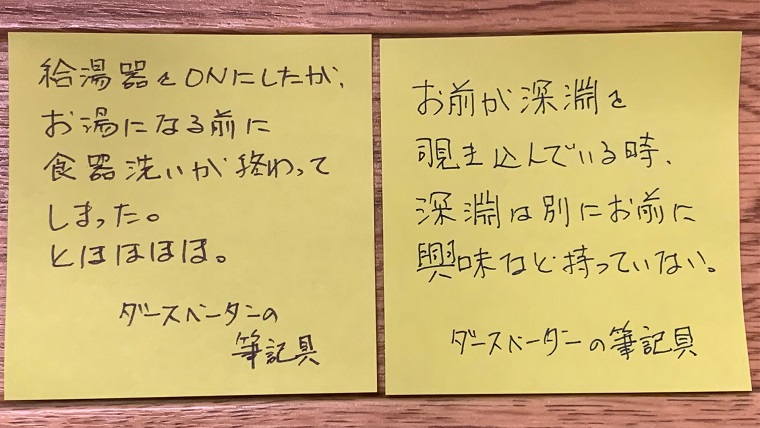 給湯器をONにしたが、
お湯になる前に
食器洗いが終わって
しまった。
とほほほほ。
ダースベータンの
筆記具
お前が深淵を
覗き込んでいる時、
深淵は別にお前に
興味など持っていない。
ダースベーターンの筆記具